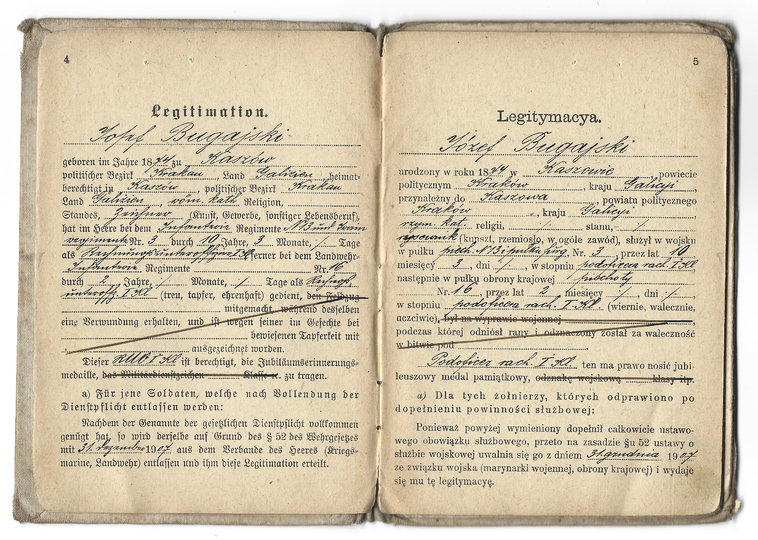 4
Legitimation.
Josef Bugajski
geboren im Jahre 1874 zu Kaszów
politischer Bezirk Krakau, Land Galizien, heimat-
berechtigt in Kaszów, politischer Bezirk Krakau
Land Galizien, röm. kath. Religion,
Standes, (Kunst, Gewerbe, sonstiger Lebensberuf),
hat im Heere bei dem Infanterie Regimente N 13 und
regimente Nr. 3 durch 10 Jahre, 3 Monate, /. Tage
als Rechnungsunteroffizier I Kl ferner bei dem Landwehr-
Infanterie Regimente Nr. 16
durch 2 Jahre, /. Monate, /. Tage als Rechngs
unteroffz I Kl (treu, tapfer, ehrenhaft) gedient, den Feldzug
mitgemacht, während desselben
eine Verwundung erhalten, und ist wegen seiner im Gefechte bei
bewiesenen Tapferkeit mit
ausgezeichnet worden.
Dieser RUO I Kl ist berechtigt, die Jubiläumserinnerungs-
medaille, das Militärdienstzeichen Klasse zc. zu tragen.
a) Für jene Soldaten, welche nach Vollendung der
Dienstpflicht entlassen werden:
Nachdem der Genannte der gesetzlichen Dienstpflicht vollkommen
genügt hat, so wird derselbe auf Grund des § 52 des Wehrgesetzes
mit 31. Dezember 1907 aus dem Verbande des Heeres (Kriegs-
marine, Landwehr) entlassen und ihm diese Legitimation erteilt.
5
Legitymacya.
Józef Bugajski
urodzony w roku 1874 w Kaszowie powiecie
politycznym Kraków, kraju Galicyi,
przynależny do Kaszowa powiatu politycznego
Kraków, kraju Galicyi
rzym. kat. religii, /. stanu, /.
(kupszt, rzemiosło, w ogóle zawód), służył w wojsku
w pułku piech. N 13 i pułku Nr. 3 przez lat 10
miesięcy 3 dni /. w stopniu podoficera rach. I Kl
następnie w pułku obrony krajowej piechoty
Nr. 16 przez lat 2 miesięcy /. dni /.
w stopniu podoficera rach. I Kl. (wiernie, walecznie,
uczciwie), był na wyprawie wojennej
podczas której odniósł rany i odznaczony został za waleczność
w bitwie pod
Podoficer rach. I Kl. ten ma prawo nosić jubi-
leuszowy medal pamiątkowy, odznakę wojskową klasy itp.
a) Dla tych żołnierzy, których odprawiono po
dopełnieniu powinności służbowej:
Ponieważ powyżej wymieniony dopełnił całkowicie ustawo-
wego obowiązku służbowego, przeto na zasadzie §u 52 ustawy o
służbie wojskowej uwalnia się go z dniem 31 grudnia 1907
ze związku wojska (marynarki wojennej, obrony krajowej) i wydaje
się mu tę legitymacyę.